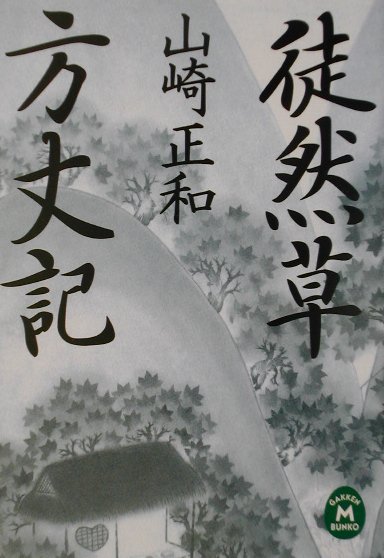 徒然草
方丈記
山崎正和
GAKKEN
M
BUNKO